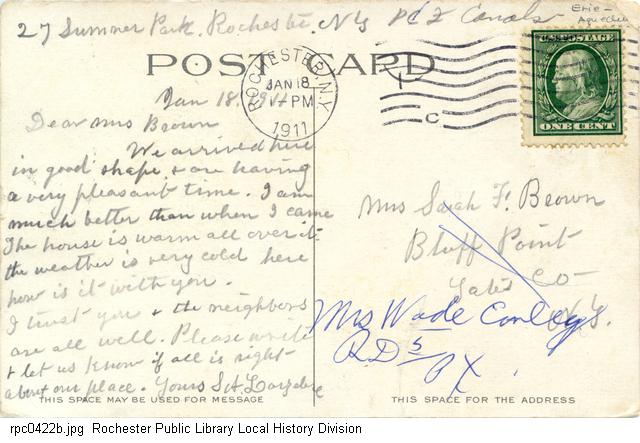 27 Summer Park, Rochester, NY
Canals
Erie-
POST CARD
ROCHESTER, N.Y.
JAN 18
PM
1911
C
U.S. POSTAGE
ONE CENT
Jan 18, 1911
Dear Mrs Brown
We arrived here
in good shape & are having
a very pleasant time. I am
much better than when I came
The house is warm all over it
the weather is very cold here
how is it with you.
I trust you & the neighbors
are all well. Please write
& let us know if all is right
about our place. Yours S A
Mrs Sarah F. Brown
Bluff Point
Yates Co
N.Y.
Mrs Wade Conley
RD 5
THIS SPACE MAY BE USED FOR MESSAGE
THIS SPACE FOR THE ADDRESS
rpc0422b.jpg Rochester Public Library Local History Division